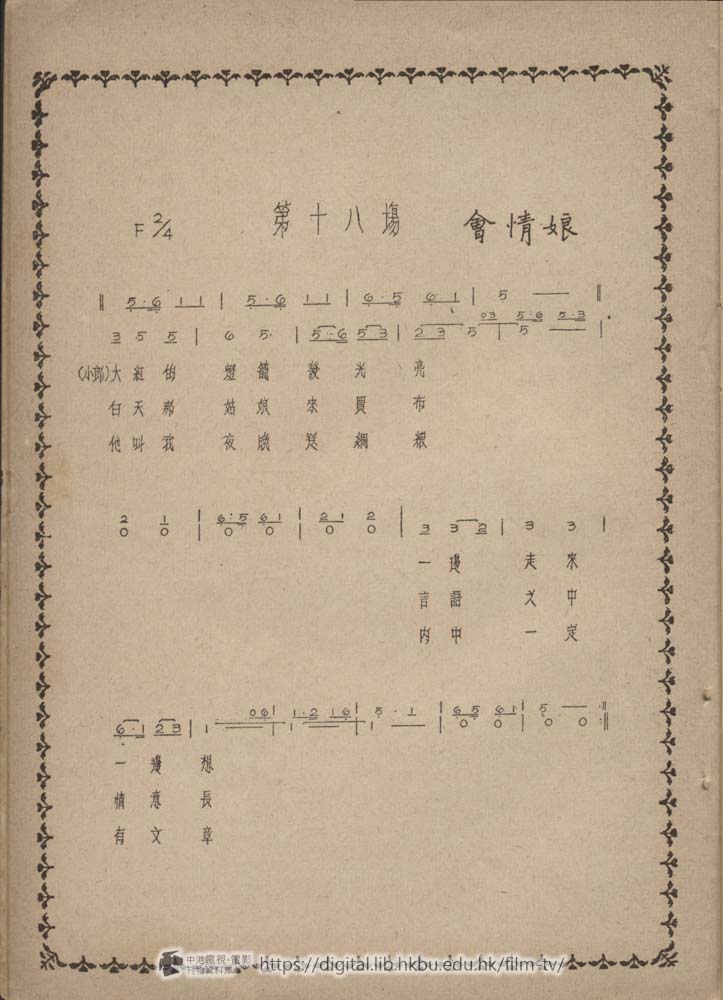 F 2/4 第十八場 會情娘
‖ 5·6 1 1 | 5·6 1 1 | 6·5 6 1 | 5 — ‖
03 5·6 5·3
3 5 5 | 6 5· | 5·6 5 3 | 2 3 5 | 5 — |
(小郎)大紅的燈籠發光亮
白天那姑娘來買布
他叫我夜晚送綢緞
2 1 | 6·5 6 1 | 2 1 2 |
0 0 | 0 0 | 0 0 | 3 3 2 | 3 3 |
一邊走來
言語之中
內中一定
06 | 1·2 16 | 5·1 | 65 61 | 5 —
6·1 2 3 | 1 — | 1 — | 1 | 0 0 | 0 0 :‖
一邊想
情意長
有文章
中港電視-電影
刊物資料庫
https://digital.lib.hkbu.edu.hk/film-tv/